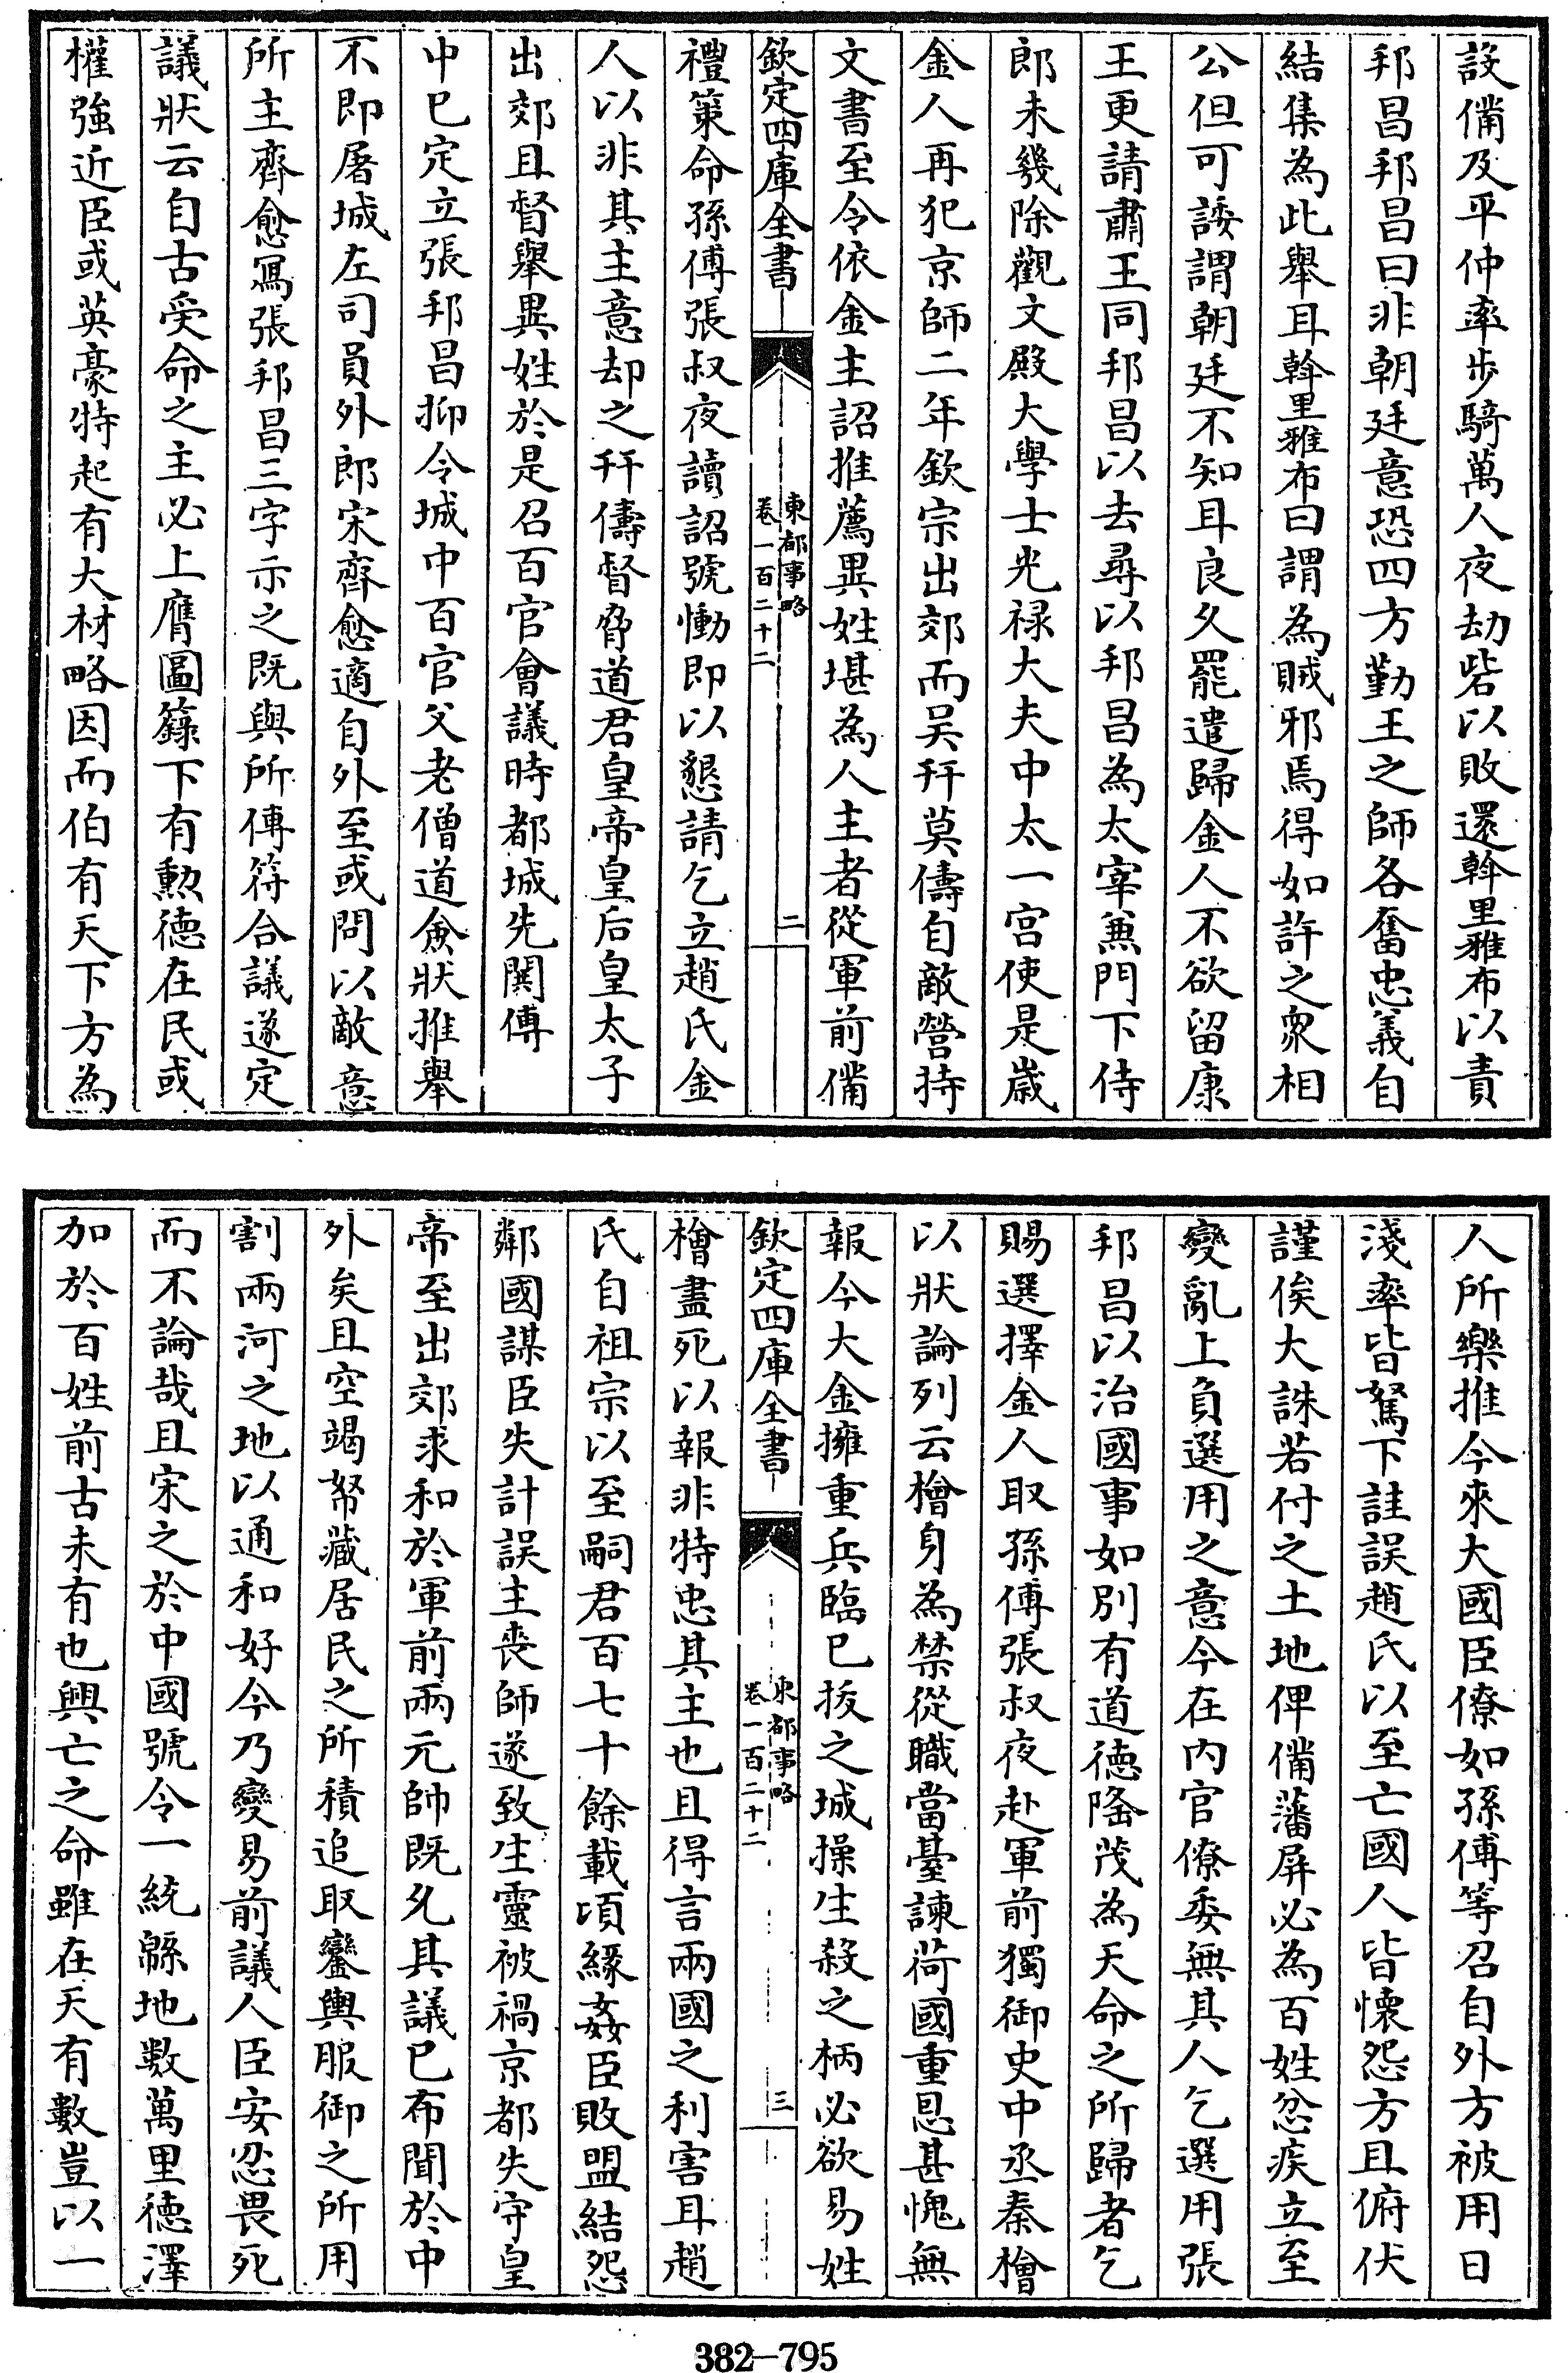 設備及平仲率步騎萬人夜劫砦以敗還斡里雅布以責
邦昌邦昌曰非朝廷意恐四方勤王之師各奮忠義自
結集為此舉耳斡里雅布曰謂為賊邪焉得如許之衆相
公但可諉謂朝廷不知耳良久罷遣歸金人不欲留康
王更請肅王同邦昌以去尋以邦昌為太宰兼門下侍
郎未幾除觀文殿大學士光禄大夫中太一宫使是歳
金人再犯京師二年欽宗出郊而吴幵莫儔自敵營持
文書至令依金主詔推薦異姓堪為人主者從軍前備
欽定四庫全書
東都事略
卷一百二十二
二
禮策命孫傅張叔夜讀詔號慟即以懇請乞立趙氏金
人以非其主意却之幵儔督脅道君皇帝皇后皇太子
出郊且督舉異姓於是召百官會議時都城先閧傳
中已定立張邦昌抑令城中百官父老僧道僉狀推舉
不即屠城左司員外郎宋齊愈適自外至或問以敵意
所主齊愈寫張邦昌三字示之既與所傳符合議遂定
議狀云自古受命之主必上膺圖籙下有勲德在民或
權強近臣或英豪特起有大材略因而伯有天下方為
人所樂推今來大國臣僚如孫傅等召自外方被用日
淺率皆駑下詿誤趙氏以至亡國人皆懐怨方且俯伏
謹俟大誅若付之土地俾備藩屏必為百姓忿疾立至
變亂上負選用之意今在内官僚委無其人乞選用張
邦昌以治國事如別有道德隆茂為天命之所歸者乞
賜選擇金人取孫傅張叔夜赴軍前獨御史中丞秦檜
以狀論列云檜身為禁從職當臺諫荷國重恩甚愧無
報今大金擁重兵臨已拔之城操生殺之柄必欲易姓
欽定四庫全書
東都事略
卷一百二十二
三
檜盡死以報非特忠其主也且得言兩國之利害耳趙
氏自祖宗以至嗣君百七十餘載頃緣姦臣敗盟結怨
鄰國謀臣失計誤主喪師遂致生靈被禍京都失守皇
帝至出郊求和於軍前兩元帥既允其議已布聞於中
外矣且空竭帑藏居民之所積追取鑾輿服御之所用
割兩河之地以通和好今乃變易前議人臣安忍畏死
而不論哉且宋之於中國號令一統緜地數萬里德澤
加於百姓前古未有也興亡之命雖在天有數豈以一
382—795